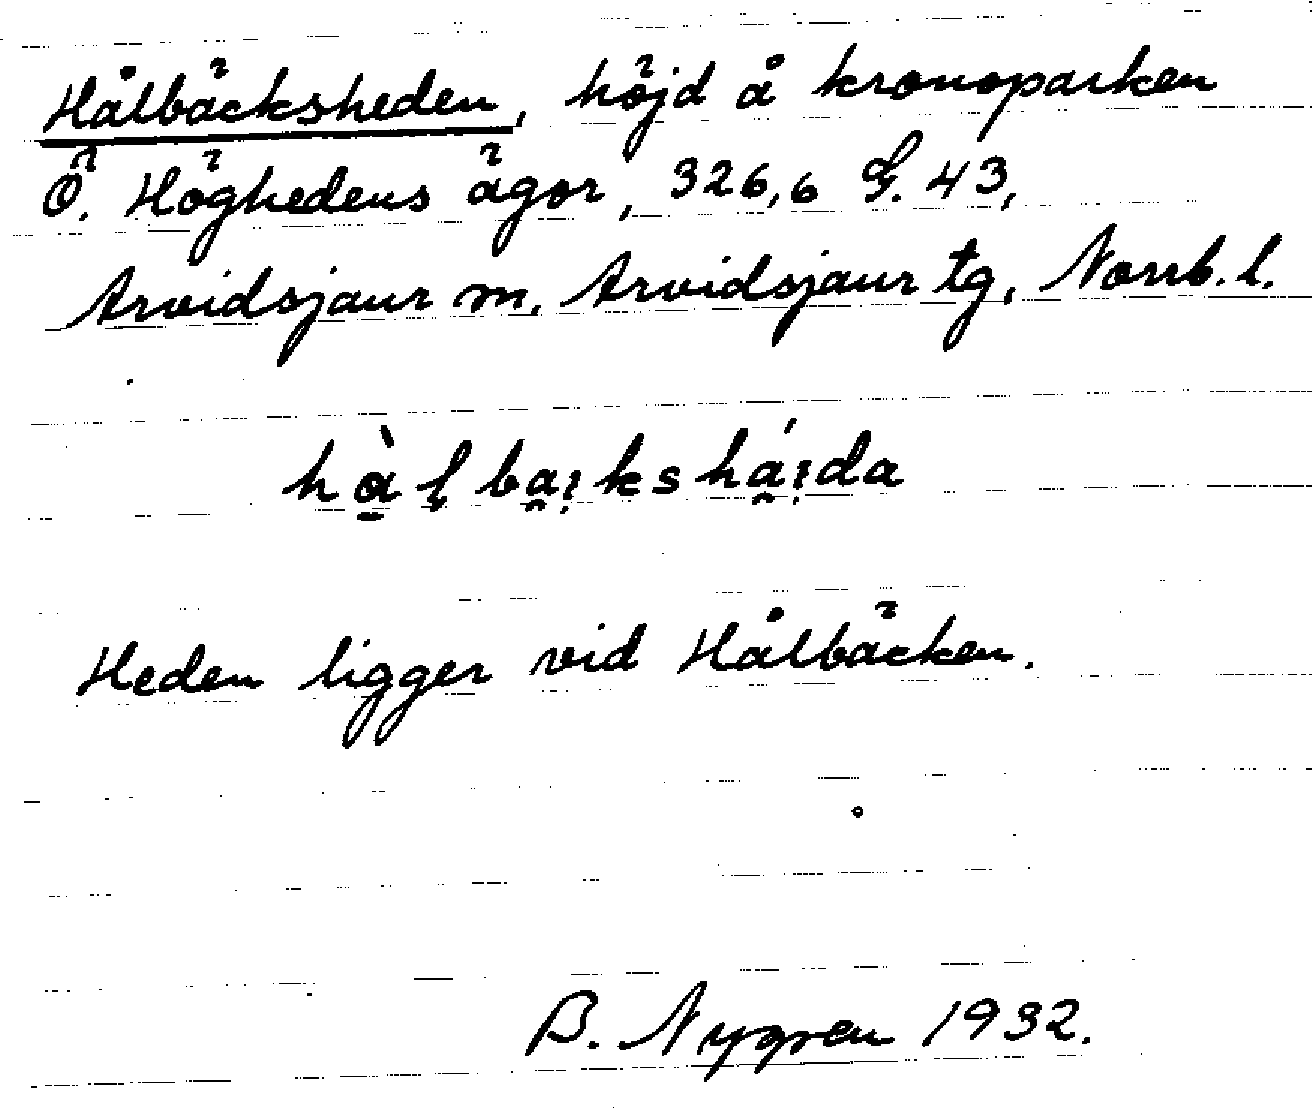 Hålbäcksheden, höjd å kronoparken
Ö. Höghedens ägor, 326,6 G. 43,
Arvidsjaur m. Arvidsjaur tg, Norrb. l.
Heden ligger vid Hålbäcken.
B. Nygren 1932.